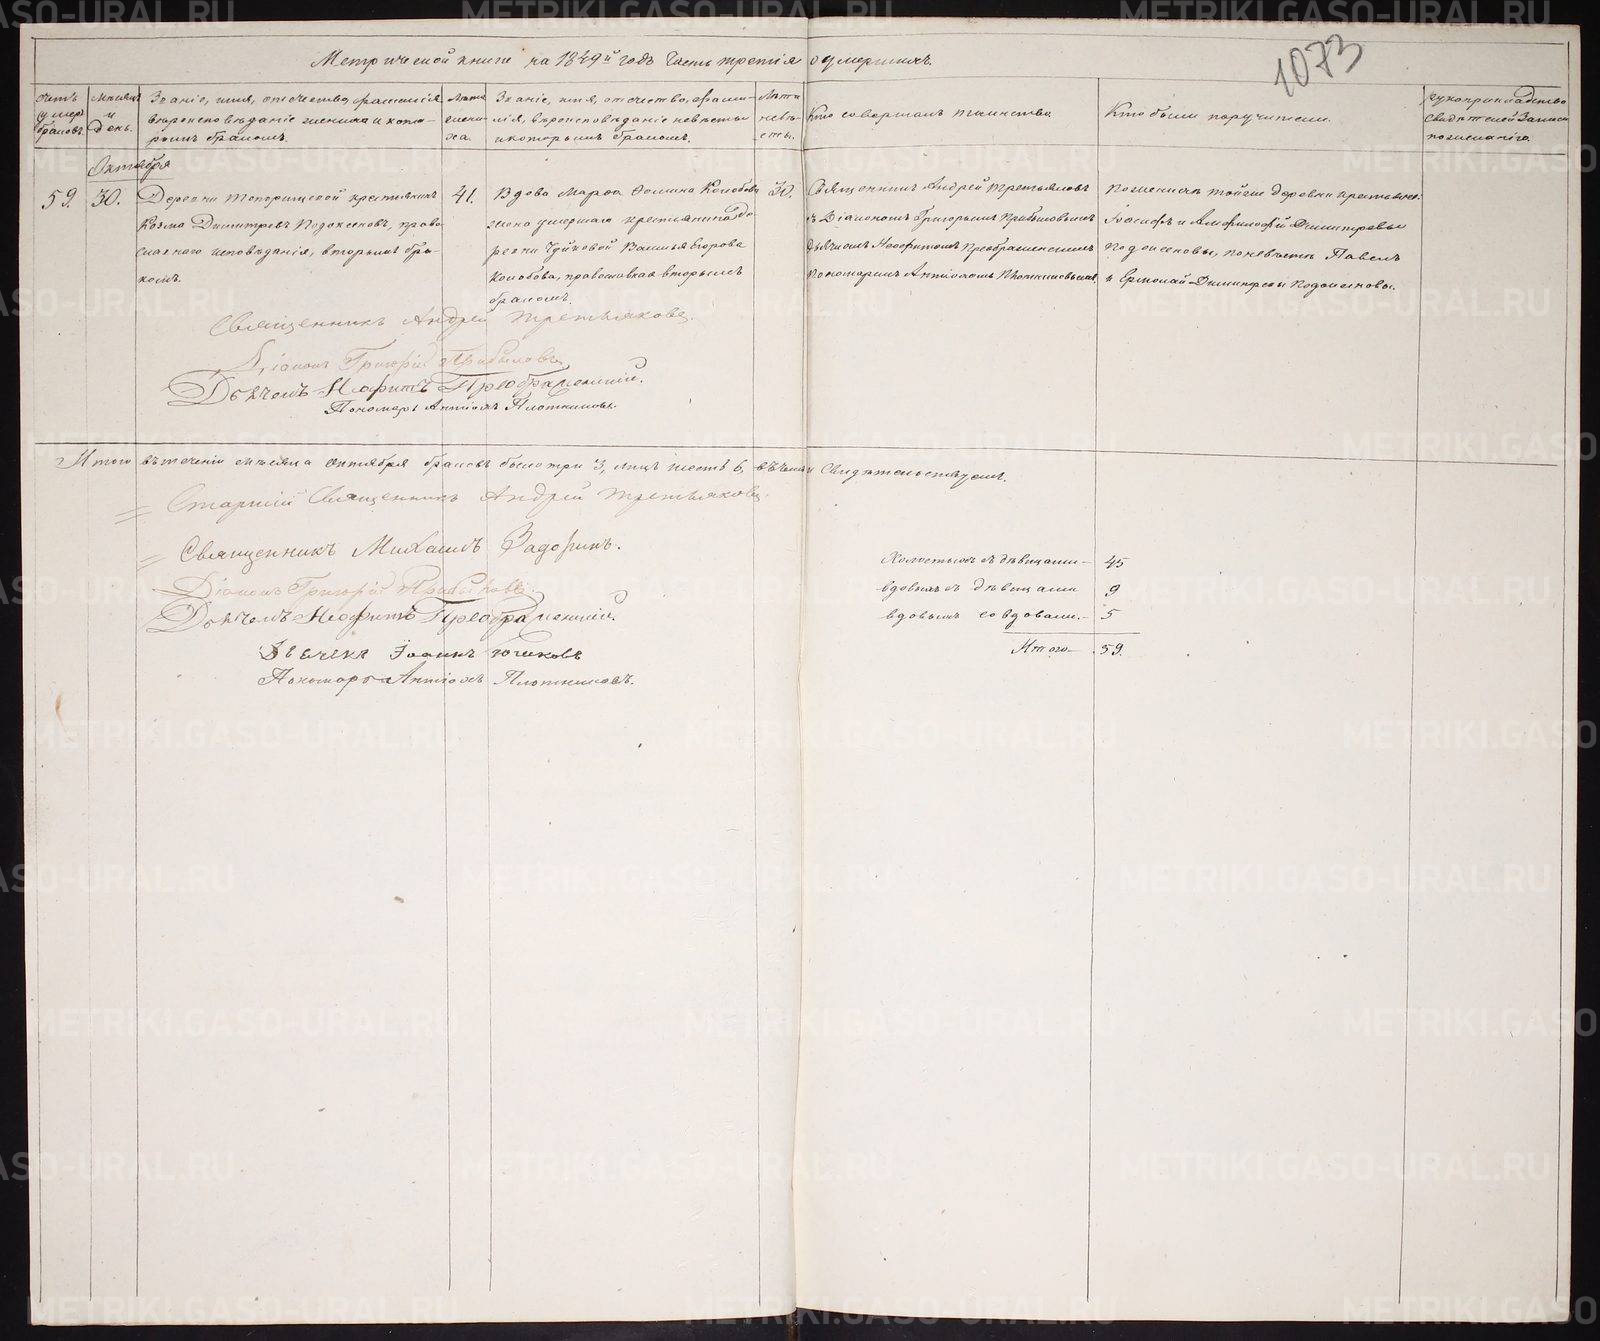 Метрической книги на 1849й годъ Часть третія о умершихъ.
1073
Счетъ умер браковъ.
Мѣсяцъ и день.
Званіе, имя, отечество, фамилія
вѣроисповѣданіе жениха и кото-
рымъ бракомъ.
Лѣта жени-
ха.
Званіе, имя, отечество, фами-
лія, вѣроисповѣданіе невѣсты
и которымъ бракомъ.
Лѣта невѣ-
сты.
Кто совершалъ таинство
Кто были поручители.
Рукоприкладство
Свидѣтелей Записи
по желанію.
Октября
59. 30.
Деревни Топорищевой крестьянинъ
Козма Димитріевъ, право-
славнаго исповѣданія, вторымъ бра-
комъ.
41.
Вдова Марѳа Ѳомина Колобова
жена умершаго крестьянина де
ревни Василья Егорова
Колобова, православная вторымъ
бракомъ.
30.
Священникъ Андрей Третьяковъ
съ Діакономъ Григорьемъ Прибыловымъ
дьячкомъ Неофитомъ Преображенскимъ
пономаремъ Антіохомъ Плотниковымъ.
по женихѣ тойже деревни крестьяне:
Іосифъ и Амфилофій Димитріевы
по невѣстѣ Павелъ
и Ермолай Димитріевы
Священникъ Андрей Третьяковъ.
Діаконъ Григорій Прибыловъ
Дьячокъ Неофитъ Преображенскій.
Пономарь Антіохъ Плотниковъ.
Итого въ теченіи мѣсяца октября браковъ было три 3, лицъ шесть 6, въ чемъ и Свидѣтельствуемъ.
Старшій Священникъ Андрей Третьяковъ.
Священникъ Михаилъ Задоринъ.
Діаконъ Григорій Прибыловъ.
Дьячокъ Неофитъ Преображенскій.
Дьячекъ Іоаннъ
Пономарь Антіохъ Плотниковъ.
Холостыхъ съ дѣвицами – 45
вдовыхъ съ дѣвицами 9
вдовыхъ со вдовами. – 5
Итого – 59.
METRIKI.GASO-URAL.RU